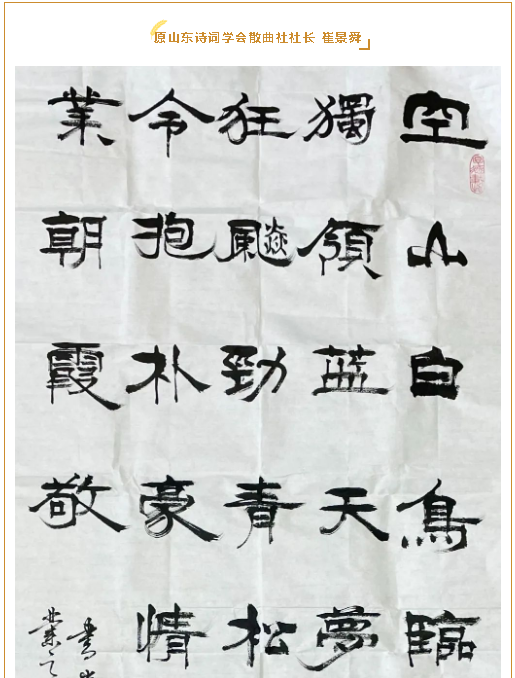 原山东诗词学会散曲社社长 崔景舜
空山白鳥臨
獨領蓝天夢
狂飈勁青松
令抱朴豪情
業朝霞敬